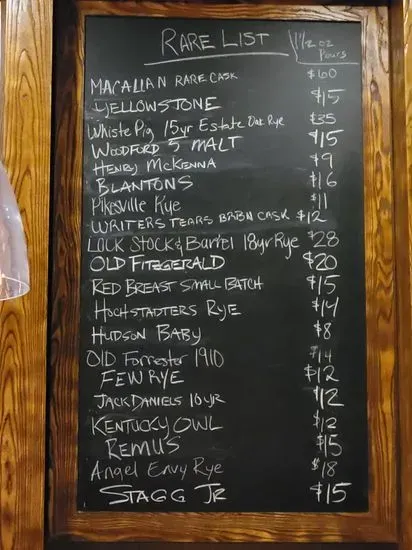 RARE LIST 1 1/2 oz
Pours
MACALLAN RARE CASK $60
YELLOWSTONE $15
Whiste Pig 15yr Estate Oak Rye $35
WOODFORD 5 MALT $15
HENRY McKENNA $9
BLANTONS $16
Pikesville Rye $11
WRITERS TEARS BRBN CASK $12
LOCK STOCK & BARREl 18yr Rye $28
OLD FITZGERALD $20
RED BREAST SMALL BATCH $15
HOCHSTADTERS RYE $14
HUDSON BABY $8
OlD Forrester 1910 $14
FEW RYE $12
JACK DANIELS 10 YR $12
KENTUCKY OWL $12
REMUS $15
Angel Envy Rye $18
STAGG JR $15